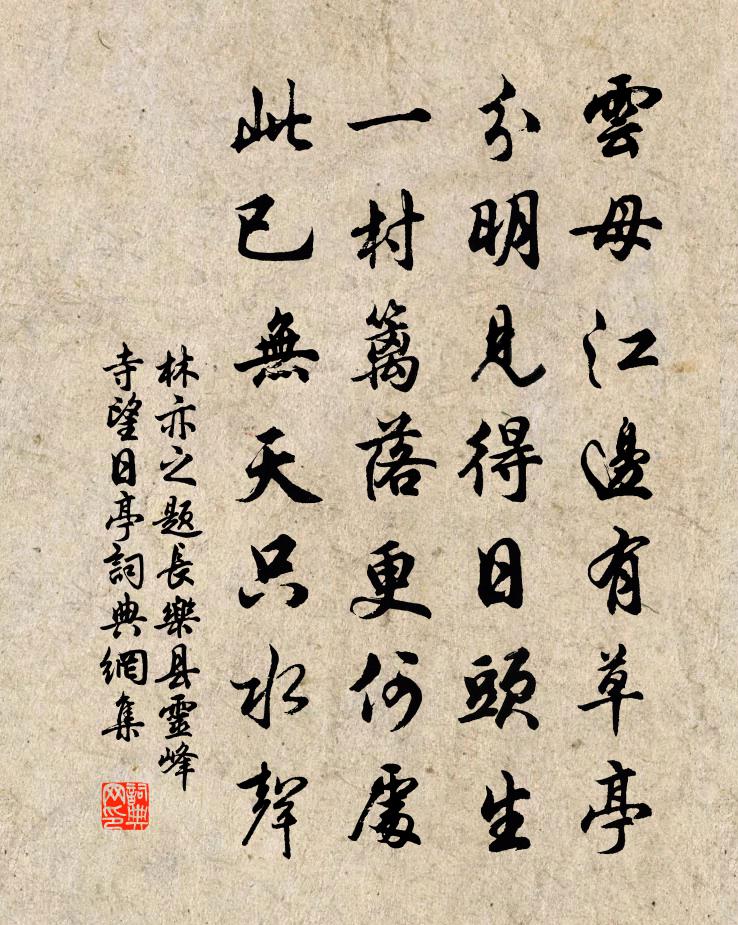 雲母江邊有草亭
分明見得日頭生
一村籬落更何處
此已無天只水聲
林亦之題長樂县靈峰
寺望日亭詞典網集
詞典网印